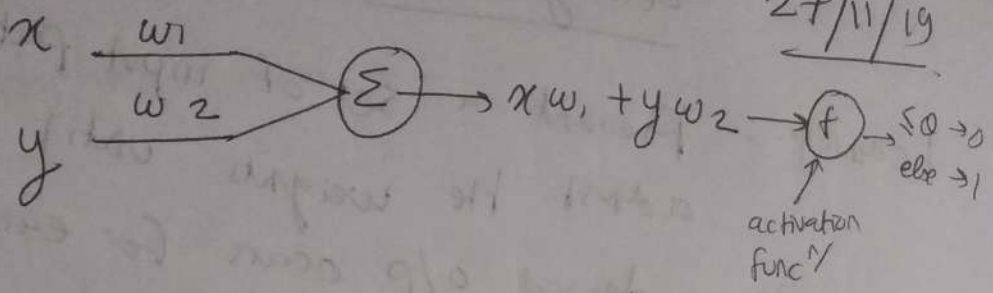 27/11/19
x w1
w2
y
Σ → xw1 + yw2 → f → ≤0 → 0
else → 1
activation
funcⁿ/